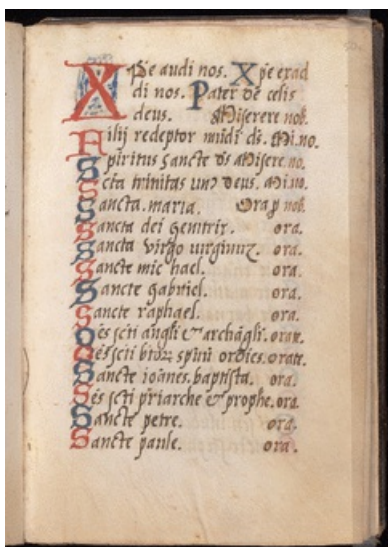 Xpe audi nos. Xpe exau
di nos. Pater de celis
deus. Miserere nob.
Filij redeptor mudi ds. Mi. no.
Spiritus sancte ds Misere. no.
Scta trinitas un9 deus. Mi. no.
Sancta. maria. Ora p nob.
Sancta dei genitrix. ora.
Sancta virgo virginuz. ora.
Sancte michael. ora.
Sancte gabriel. ora.
Sancte raphael. ora.
Oēs scti āngli & archāgli. orate.
Oēs scti btorꝝ spiriū ordies. orate.
Sancte ioānes. baptista. ora.
Oēs scti pr̄iarche & prophe. ora.
Sancte petre. ora.
Sancte paule. ora.